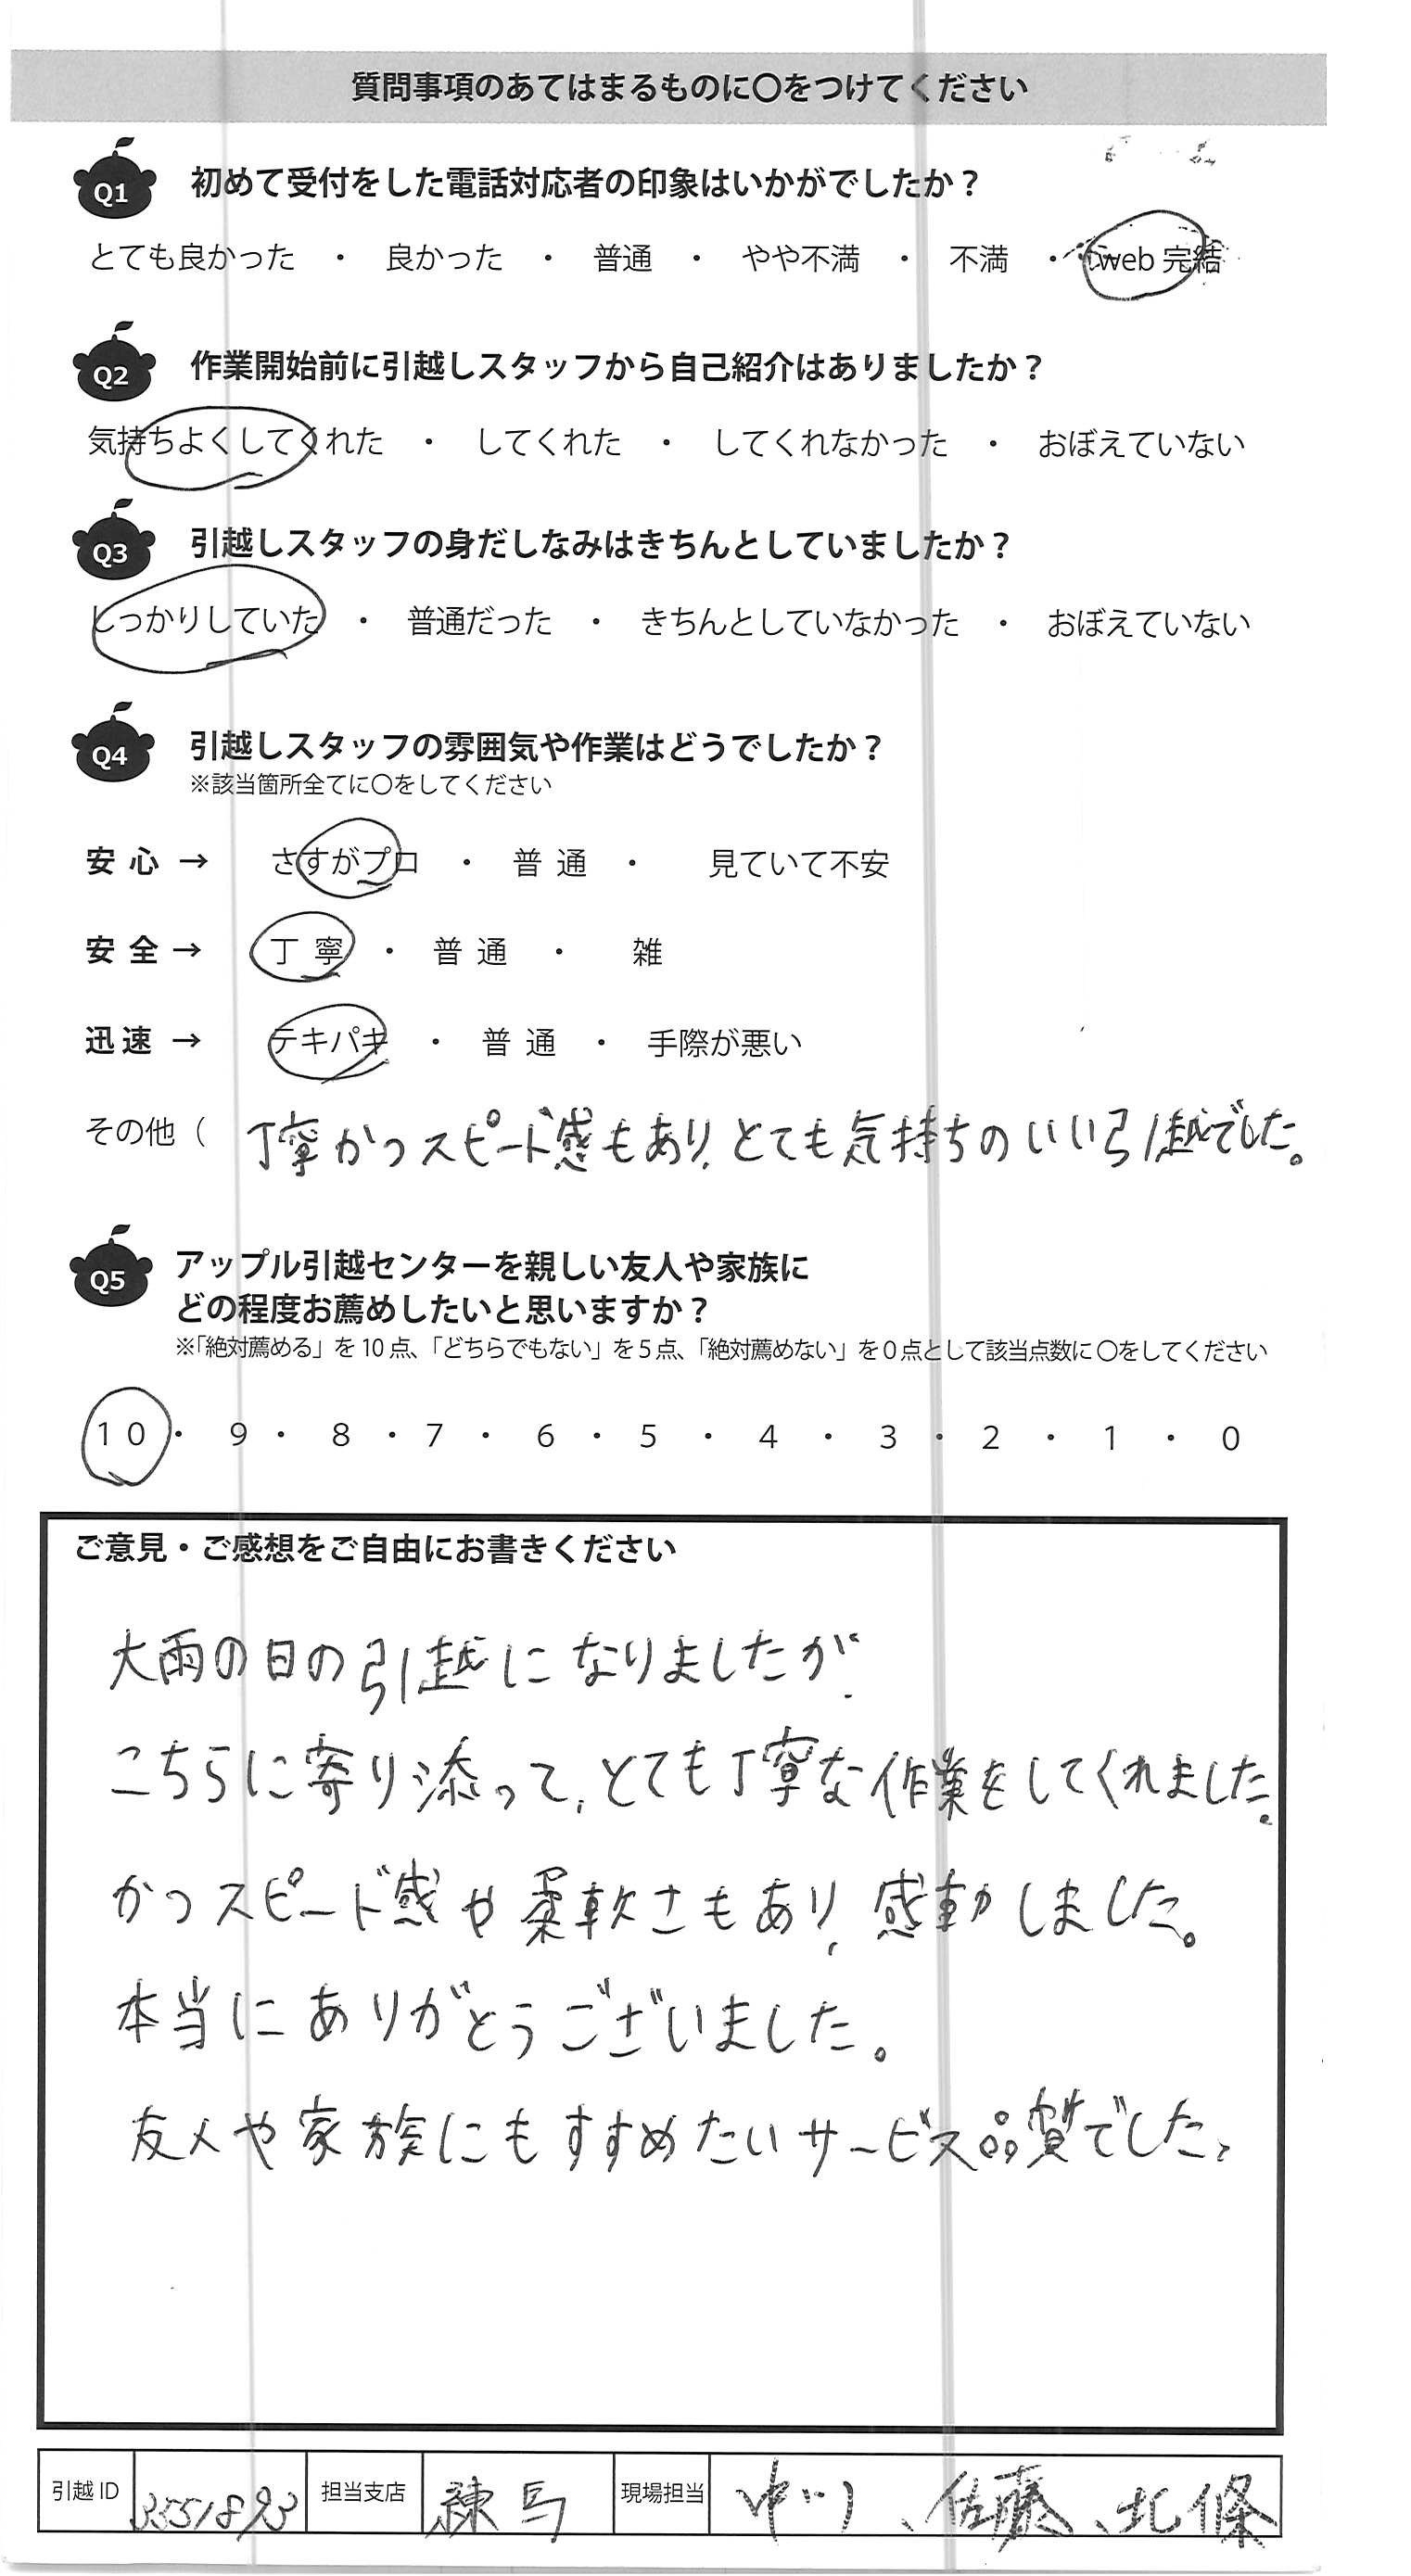 質問事項のあてはまるものに〇をつけてください
Q1 初めて受付をした電話対応者の印象はいかがでしたか？
とても良かった ・ 良かった ・ 普通 ・ やや不満 ・ 不満 ・ web 完結
Q2 作業開始前に引越しスタッフから自己紹介はありましたか？
気持ちよくしてくれた ・ してくれた ・ してくれなかった ・ おぼえていない
Q3 引越しスタッフの身だしなみはきちんとしていましたか？
しっかりしていた ・ 普通だった ・ きちんとしていなかった ・ おぼえていない
Q4 引越しスタッフの雰囲気や作業はどうでしたか？
※該当箇所全てに〇をしてください
安心 → さすがプロ ・ 普通 ・ 見ていて不安
安全 → 丁寧 ・ 普通 ・ 雑
迅速 → テキパキ ・ 普通 ・ 手際が悪い
その他（ 丁寧かつスピード感もあり、とても気持ちのいい引越でした。
Q5 アップル引越センターを親しい友人や家族に
どの程度お薦めしたいと思いますか？
※「絶対薦める」を 10 点、「どちらでもない」を 5 点、「絶対薦めない」を 0 点として該当点数に 〇をしてください
10 ・ 9 ・ 8 ・ 7 ・ 6 ・ 5 ・ 4 ・ 3 ・ 2 ・ 1 ・ 0
ご意見・ご感想をご自由にお書きください
大雨の日の引越になりましたが、
こちらに寄り添って、とても丁寧な作業をしてくれました。
かつスピード感や柔軟さもあり、感動しました。
本当にありがとうございました。
友人や家族にもすすめたいサービス品質でした。
引越 ID 3551893 担当支店 練馬 現場担当 、佐藤、北條